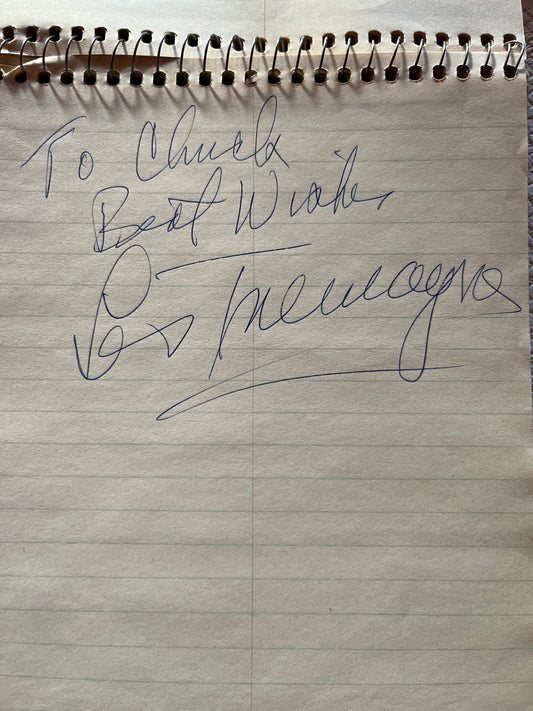 To Chuck
Best Wishes
Les Tremayne